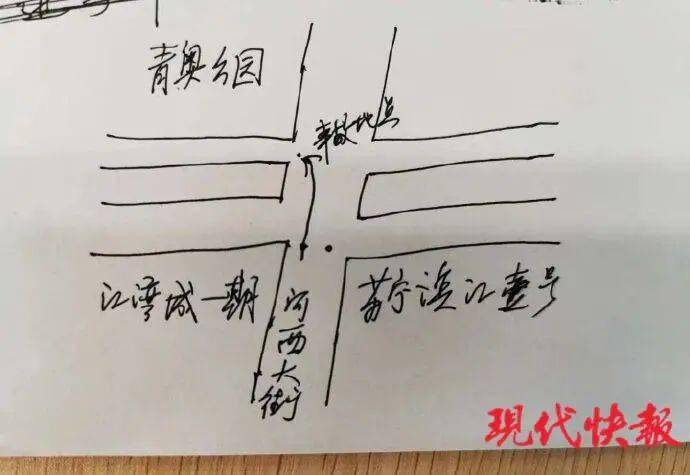 青奥公园
事故地点
江湾城一期
苏宁滨江壹号
河西大街
現代快報